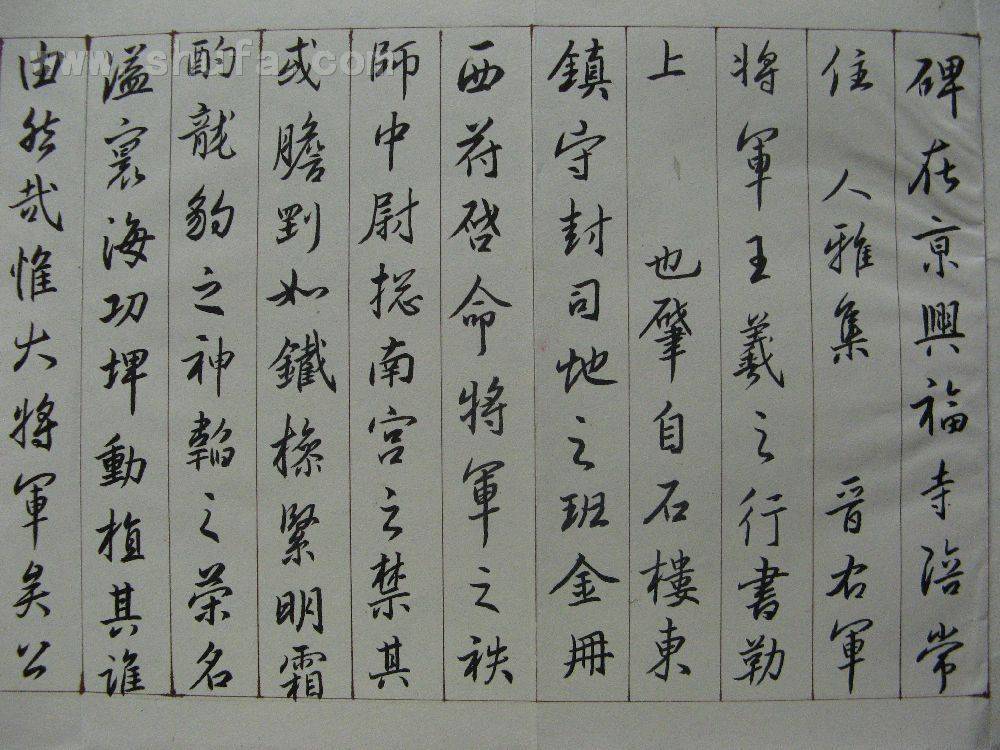 碑在京興福寺陪常
住 人雅集 晉右軍
將軍王羲之行書勒
上 也肇自石樓東
鎮守封司地之班金冊
西苻啓命將軍之袟
師中尉揔南宮之禁其
或瞻𠜇如鐵橾緊明霜
酌龍豹之神韜之榮名
溢寰海功埤動植其誰
由然哉惟大將軍矣公
www.shufa.com